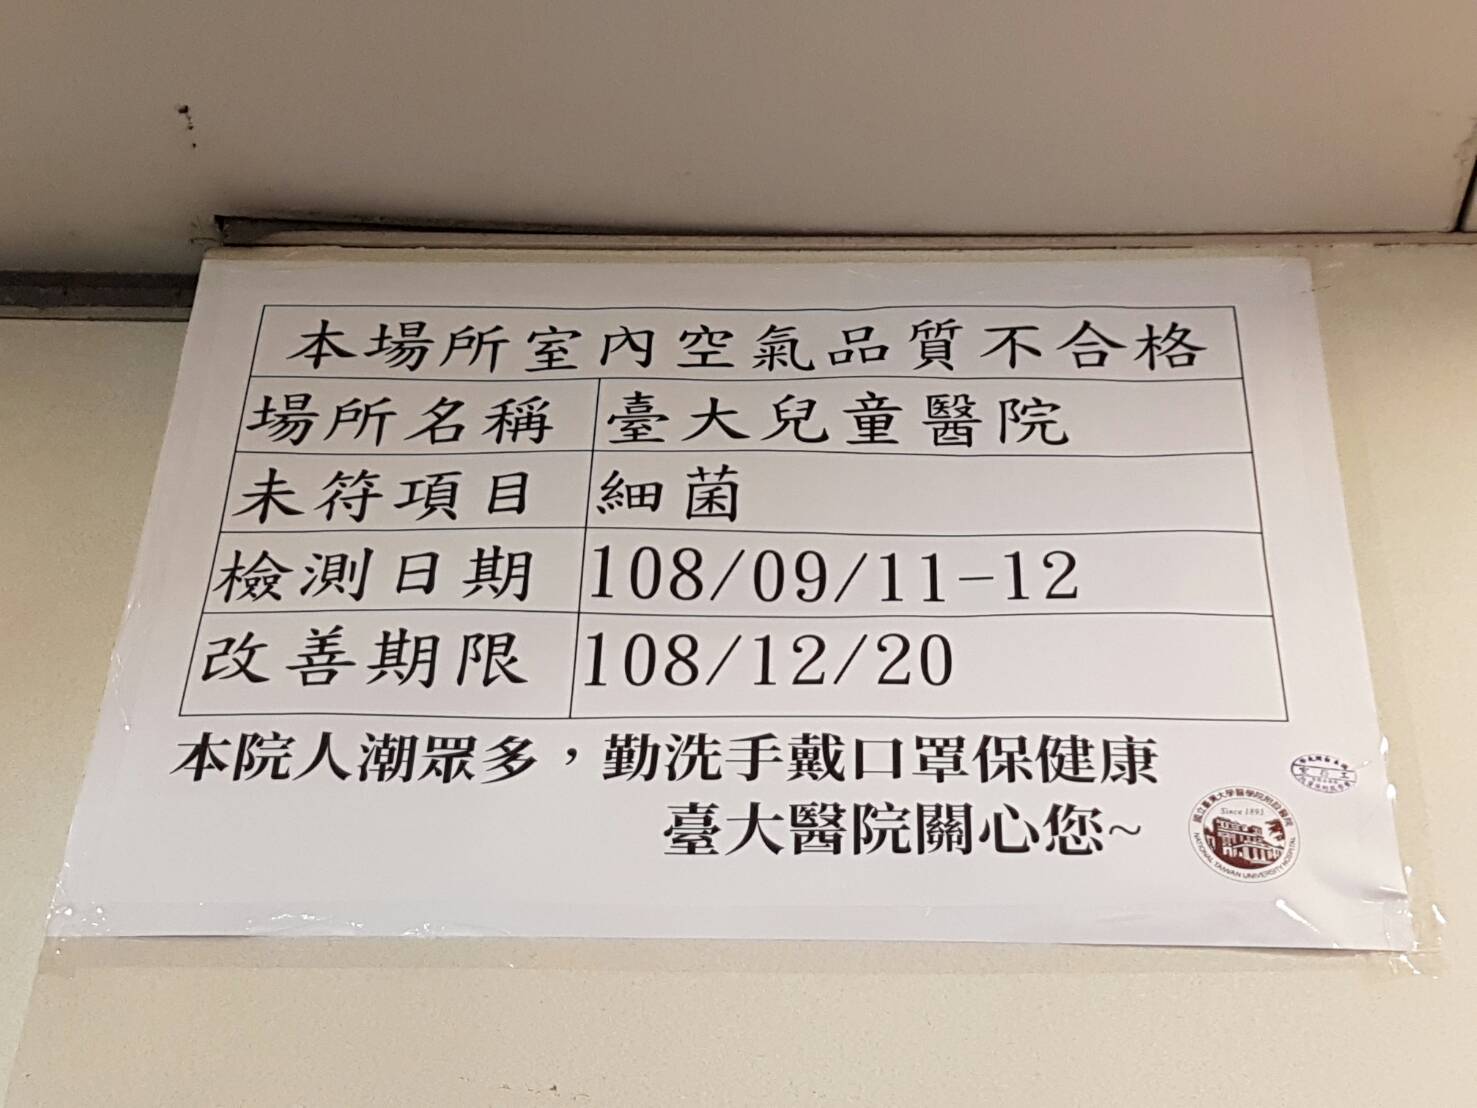 本場所室內空氣品質不合格
場所名稱 臺大兒童醫院
未符項目 細菌
檢測日期 108/09/11-12
改善期限 108/12/20
本院人潮眾多，勤洗手戴口罩保健康
臺大醫院關心您~
國立臺灣大學醫學院附設醫院
Since 1895
NATIONAL TAIWAN UNIVERSITY HOSPITAL